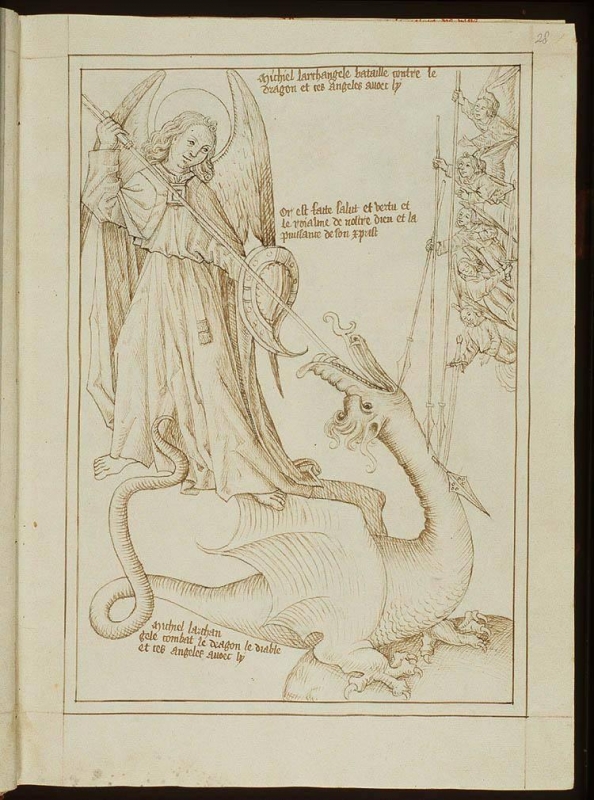 28
Michiel larchangele bataille contre le
dragon et ces angeles avoec ly
Or est faite salut et vertu et
le roialme de nostre dieu et la
puissance de son xprist
Michiel larchan
gele combat le dragon le diable
et ces angeles avoec ly